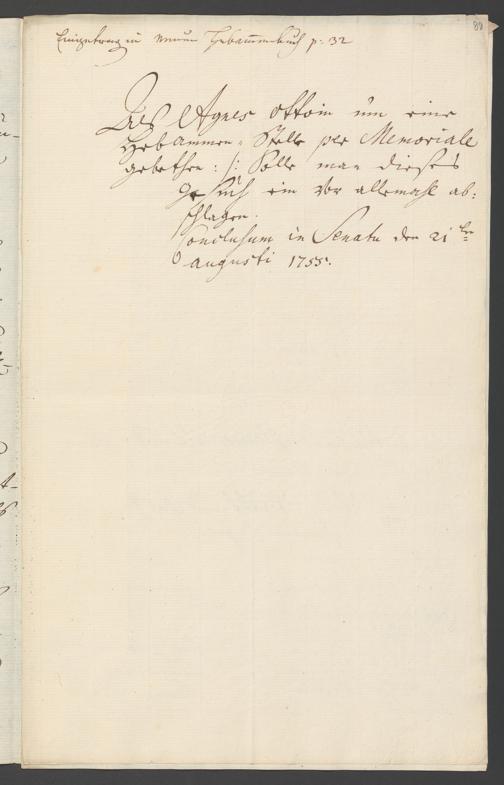 80
Eingetrag in neuen Hebammenbuch p: 32
Als Agnes Ottoin um eine
Hebammen-Stelle per Memoriale
gebethen: /: Solle man dieses
Gesuch ein vor allemahl ab:
schlagen.
Conclusum in Senatu den 21ten
Augusti 1755.